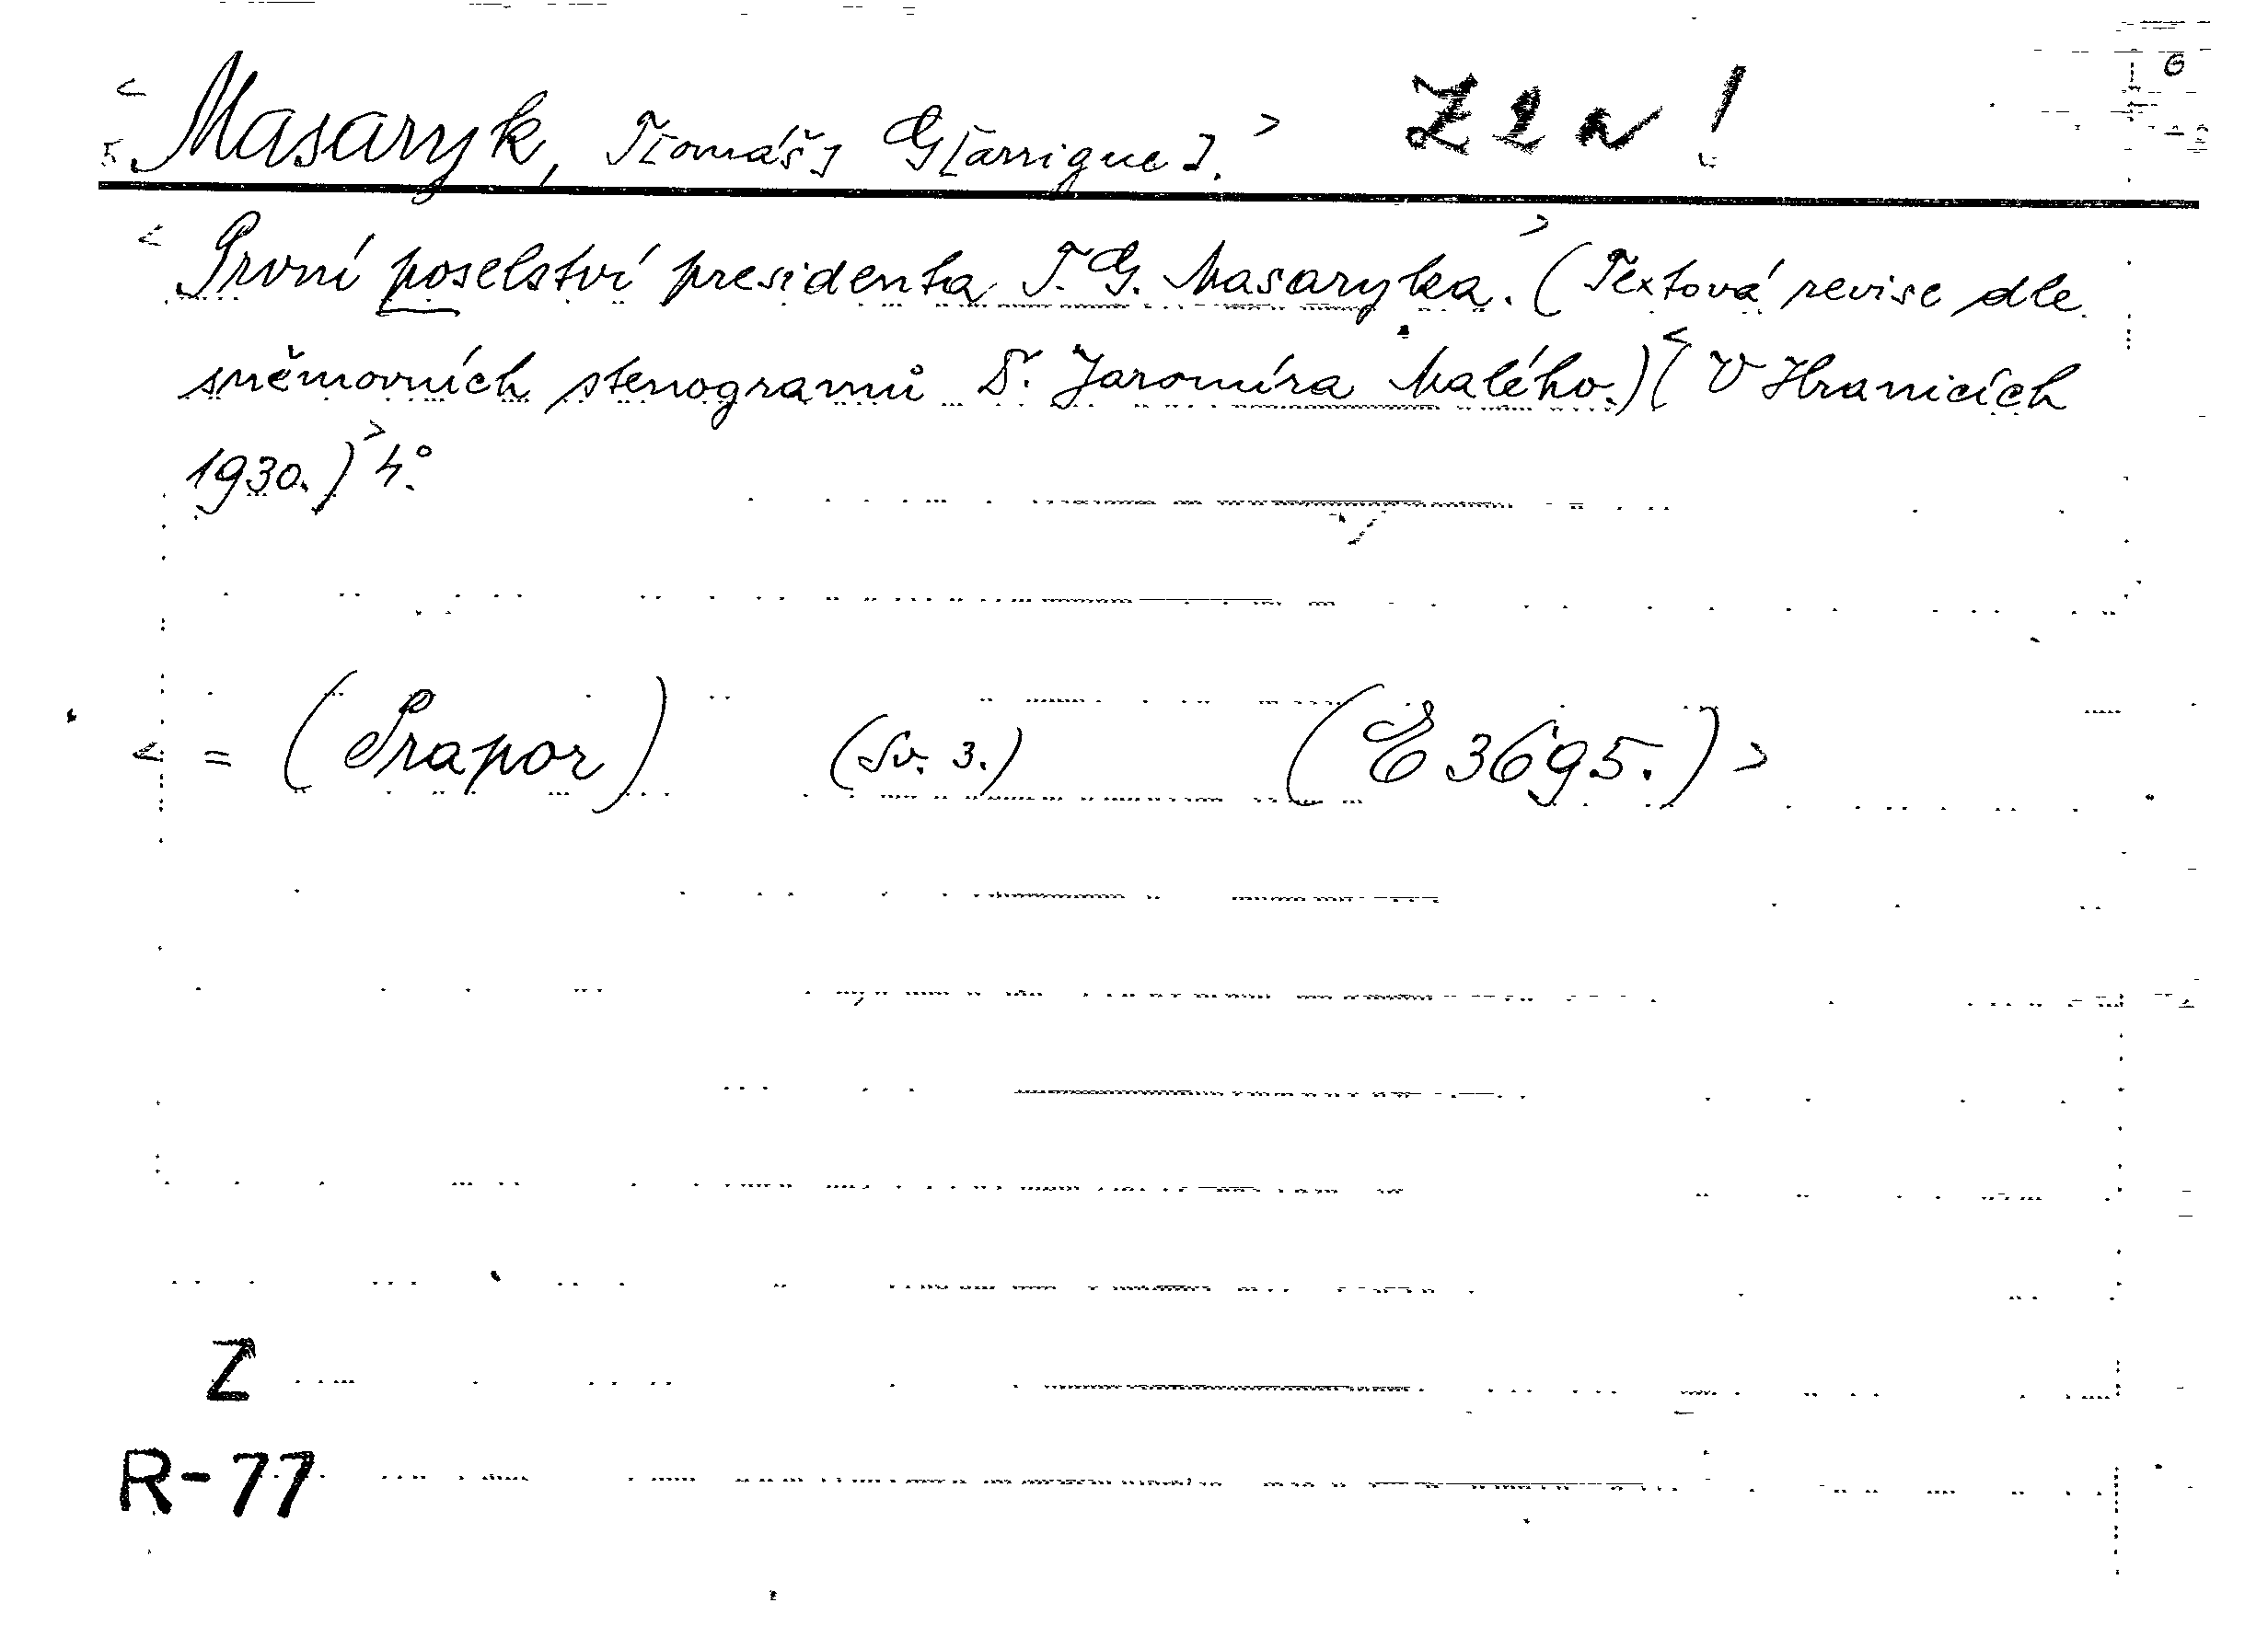 < Masaryk, T[omáš] G[arrigue]. > Z 2 a !
< První poselství presidenta T. G. Masaryka. > (Textová revise dle
sněmovních stenogramů D. Jaromíra Malého.) < (V Hranicích
1930.) > 4°.
< = (Prapor) (Sv. 3.) (E 3695.) >
Z
R-77